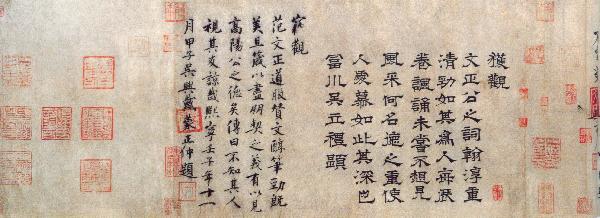 獲觀
文正公之詞翰淳重
清勁如其爲人
卷諷誦未嘗不想見
風采何名德之重使
人愛慕如此其深也
富川吳立禮題
觀
范文正道服贊文醇筆勁既
美且箴以盡朋契之義有以見
高陽公之德矣傳曰不知其人
視其友諒哉熙寧壬子年十一
月甲子吳興戴蒙正仲題